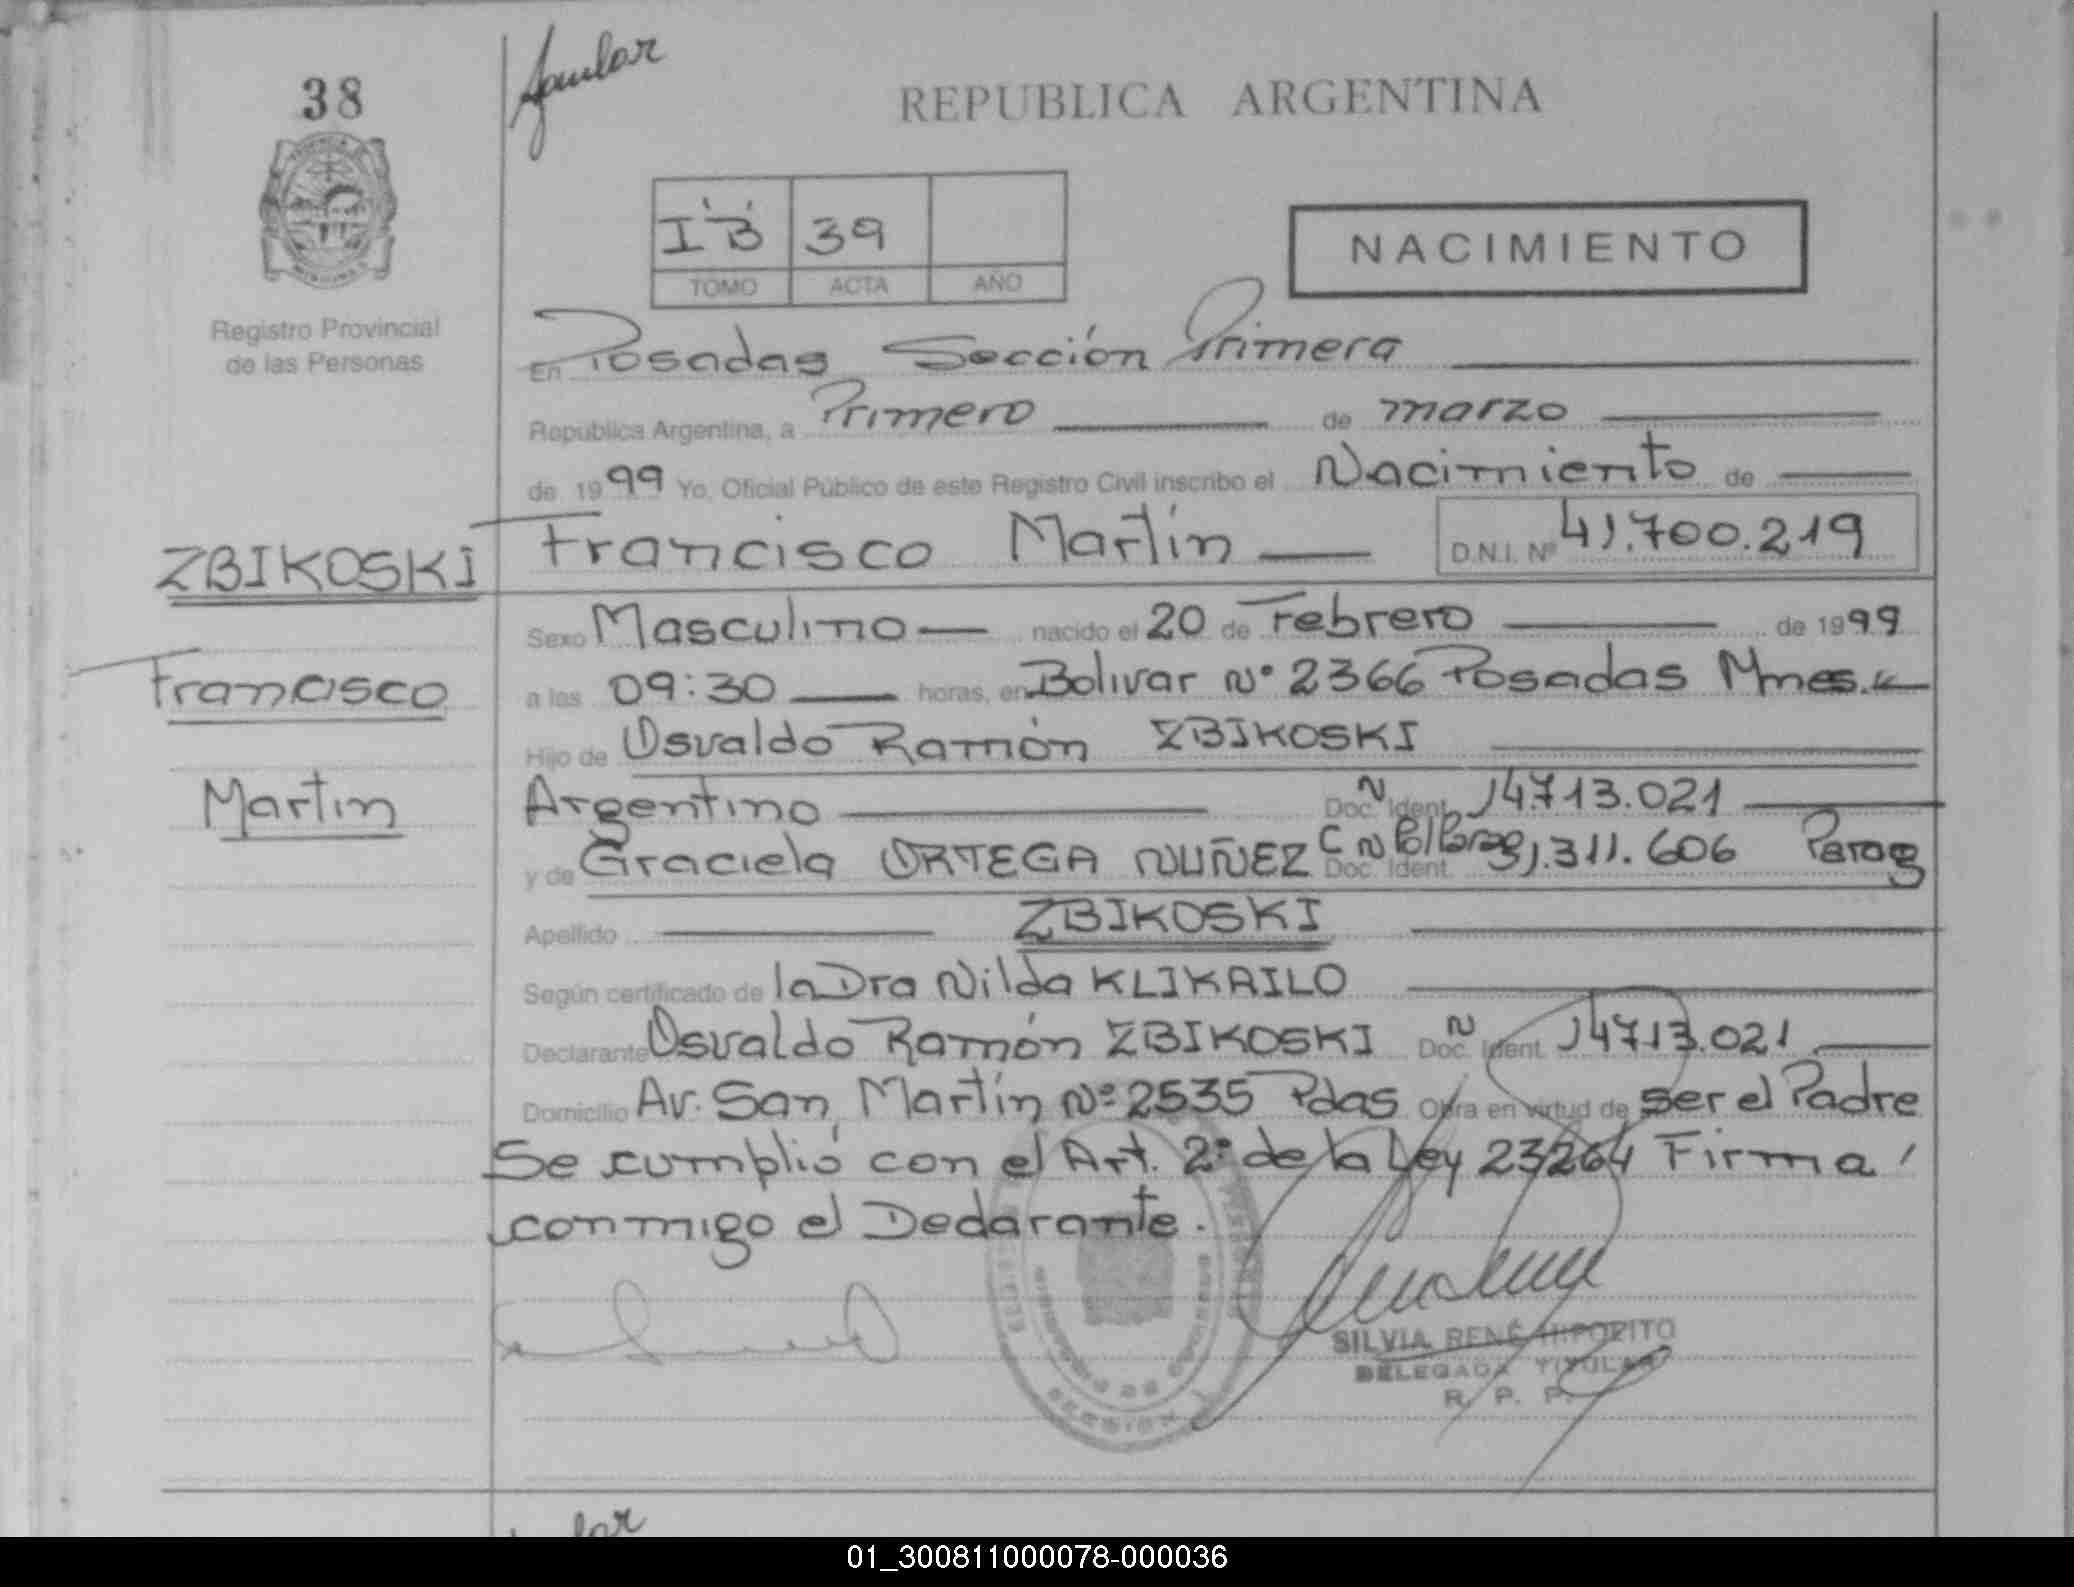 38
REPUBLICA ARGENTINA
I "B" 39
TOMO ACTA AÑO
NACIMIENTO
Registro Provincial
de las Personas
En Posadas Sección Primera
República Argentina, a Primero de marzo
de 1999 Yo, Oficial Público de este Registro Civil inscribo el Nacimiento de
ZBIKOSKI Francisco Martín D.N.I. Nº 41.700.219
Sexo Masculino nacido el 20 de Febrero de 1999
Francisco
a las 09:30 horas, en Bolivar Nº 2366 Posadas Mnes.
Hijo de Osvaldo Ramón ZBIKOSKI
Martin
Argentino Doc. Ident. N 14.713.021
y de Graciela ORTEGA NUÑEZ Doc. Ident. C N Pol Parag 1.311.606 Parag
Apellido ZBIKOSKI
Según certificado de la Dra Nilda KLIKAILO
Declarante Osvaldo Ramón ZBIKOSKI Doc. Ident. N 14713.021
Domicilio Av. San Martín Nº 2535 Pdas Obra en virtud de ser el Padre
Se cumplió con el Art. 2º de la Ley 23264 Firma
conmigo el Declarante.
SILVIA RENÉ HIPOLITO
DELEGADA TITULAR
R. P. P.
01_300811000078-000036